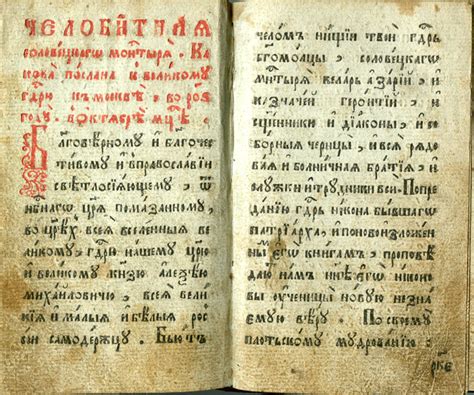 ЧЕЛОБИ́ТНАЯ
соловецкагѡ монⷭ҇тыря. Ка
кова послана к великому
гдⷭ҇рю к москвѣ, во роѕ
году. в октябрѣ мцⷭ҇ѣ.
Благовѣрному и благочес
тивому и вправославїи
свѣтлосїяющему, ѿ
бга҃ цр҃я помазанному,
во цр҃ѣхъ всея вселенныя ве
ликому, гдⷭ҇рю нашему цр҃ю
и великому князю алеѯѣю
михайловичю, всея вели
кїя и малыя и бѣлыя рос
сїи самодержцу. Бьютъ
челомъ нищїи твои гдⷭ҇рь
бг҃омолцы, соловецкагѡ
мⷭ҇нтыря келарь азарїй, и
казначей геронтїй, и
сщ҃енники и дїаконы, и со
борныя черницы, и вся рядо
вая и болничная братїя, и
служки и трудники вси. Попре
данїю гдⷭ҇рь никона бывшагѡ
патрїарха, и поновоизложен
ны егѡ книгамъ, проповѣ
даютъ намъ нн҃ѣ егѡ никоно
вы оученицы новую незна
емую вѣру. По своему
плотьскому мудрованїю,
рк҃е